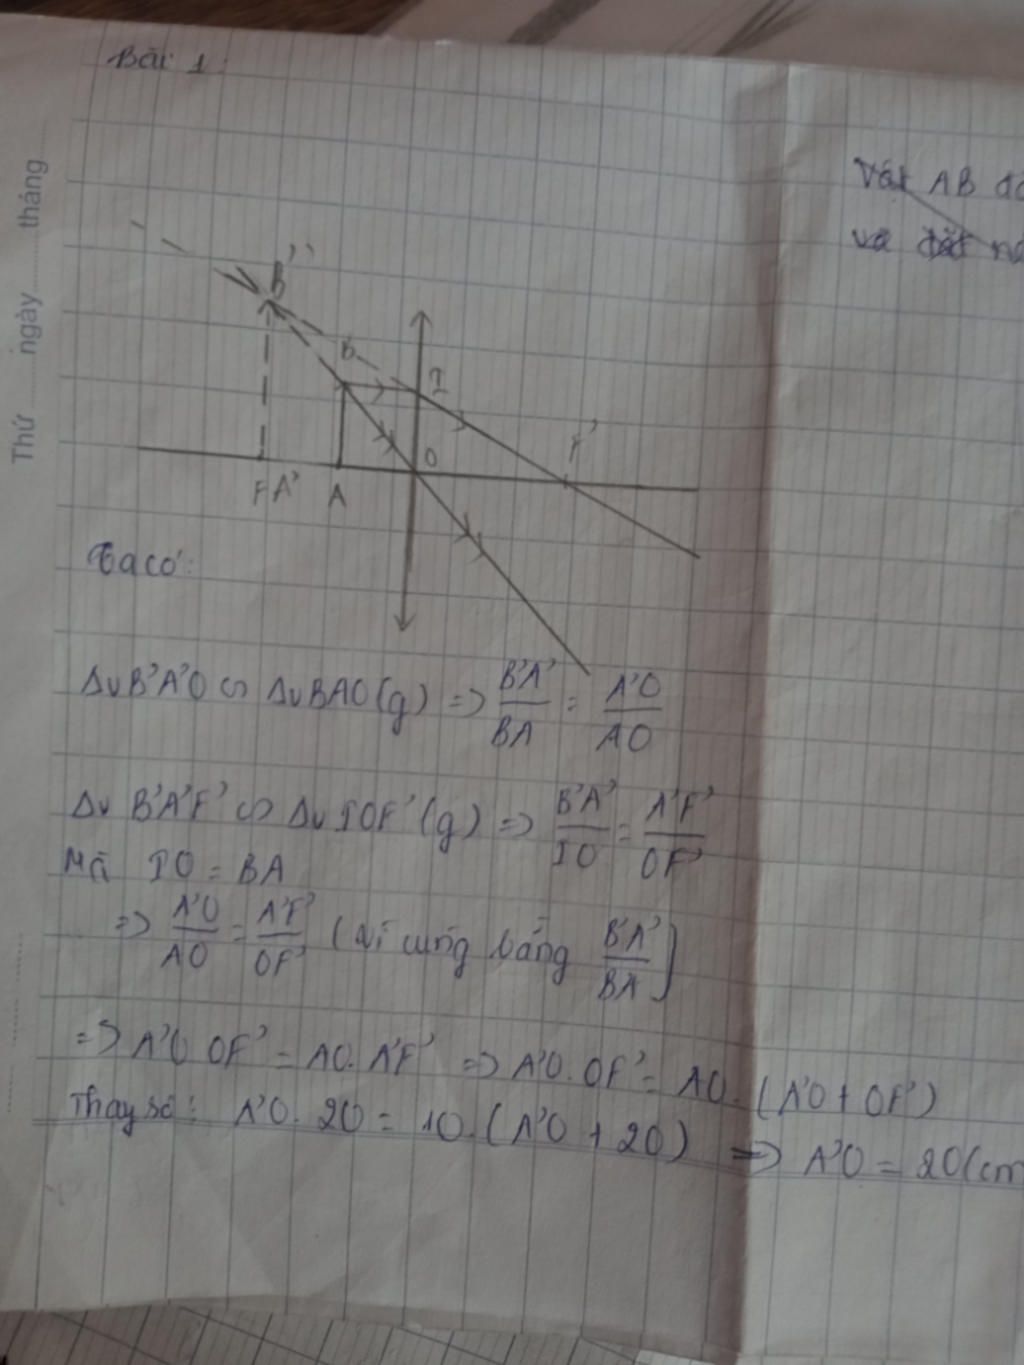 Bài 1:
Thứ ........ ngày ........ tháng ........
Vật AB
và đặt
B'
B
I
F'
O
F A' A
Ta có:
Δv B'A'O ∽ Δv BAO (g) => B'A'/BA = A'O/AO
Δv B'A'F' ∽ Δv IOF' (g) => B'A'/IO = A'F'/OF'
Mà IO = BA
=> A'O/AO = A'F'/OF' (vì cùng bằng B'A'/BA)
=> A'O.OF' = AO.A'F' => A'O.OF' = AO.(A'O + OF')
Thay số: A'O.20 = 10.(A'O + 20) => A'O = 20(cm